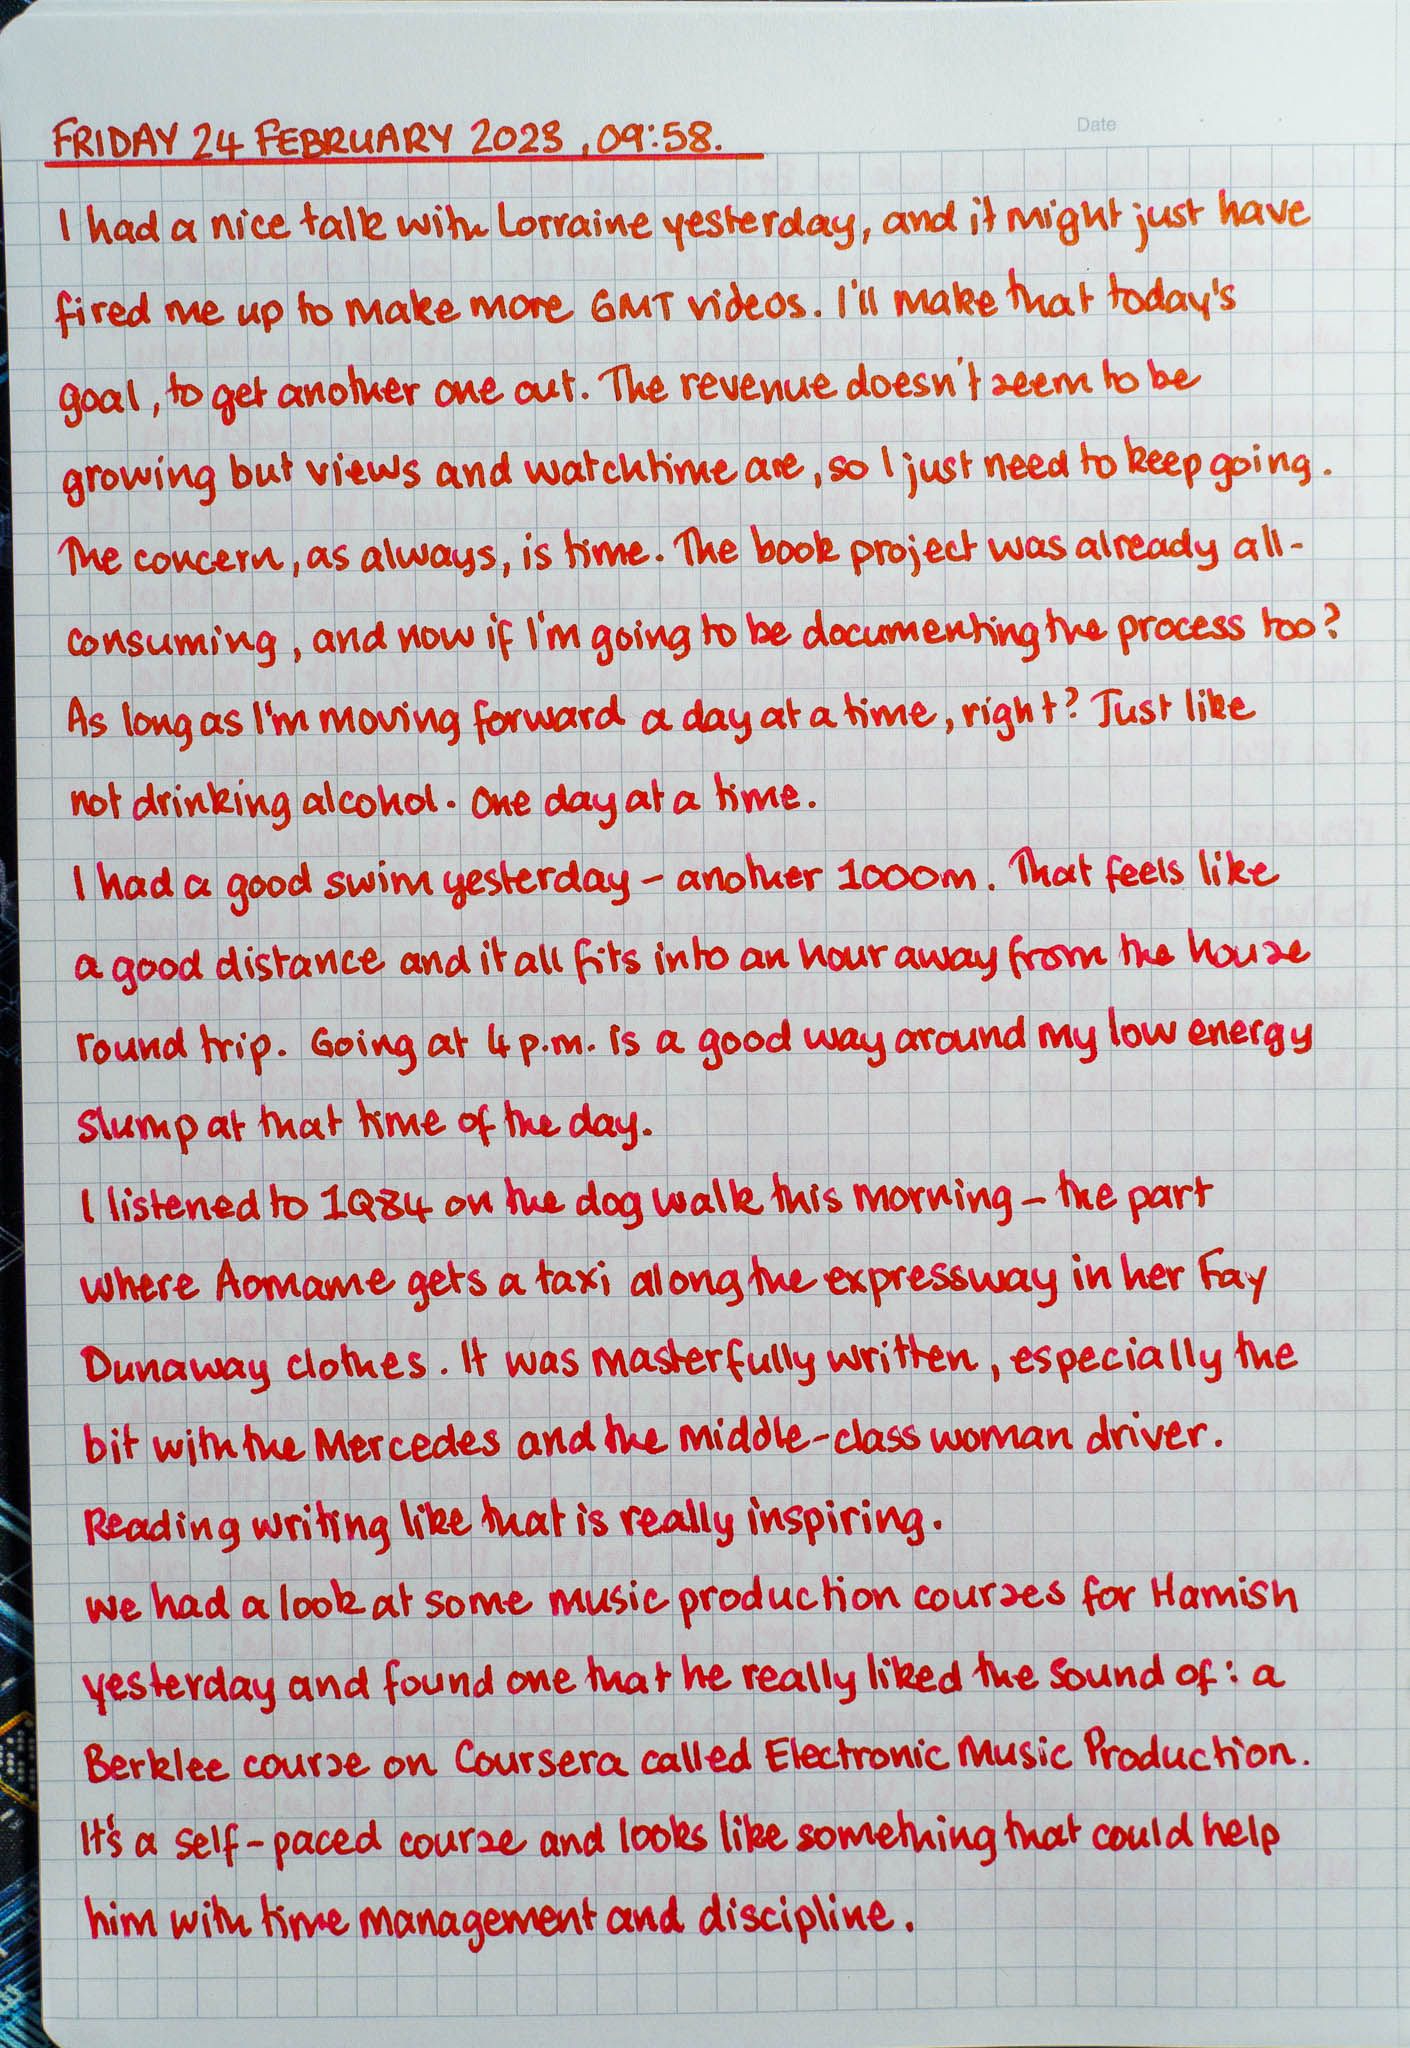 Date
FRIDAY 24 FEBRUARY 2023, 09:58.
I had a nice talk with Lorraine yesterday, and it might just have
fired me up to make more GMT videos. I'll make that today's
goal, to get another one out. The revenue doesn't seem to be
growing but views and watchtime are, so I just need to keep going.
The concern, as always, is time. The book project was already all-
consuming, and now if I'm going to be documenting the process too?
As long as I'm moving forward a day at a time, right? Just like
not drinking alcohol. One day at a time.
I had a good swim yesterday - another 1000m. That feels like
a good distance and it all fits into an hour away from the house
round trip. Going at 4 p.m. is a good way around my low energy
slump at that time of the day.
I listened to 1Q84 on the dog walk this morning - the part
where Aomame gets a taxi along the expressway in her Fay
Dunaway clothes. It was masterfully written, especially the
bit with the Mercedes and the middle-class woman driver.
Reading writing like that is really inspiring.
We had a look at some music production courses for Hamish
yesterday and found one that he really liked the sound of: a
Berklee course on Coursera called Electronic Music Production.
It's a self-paced course and looks like something that could help
him with time management and discipline.